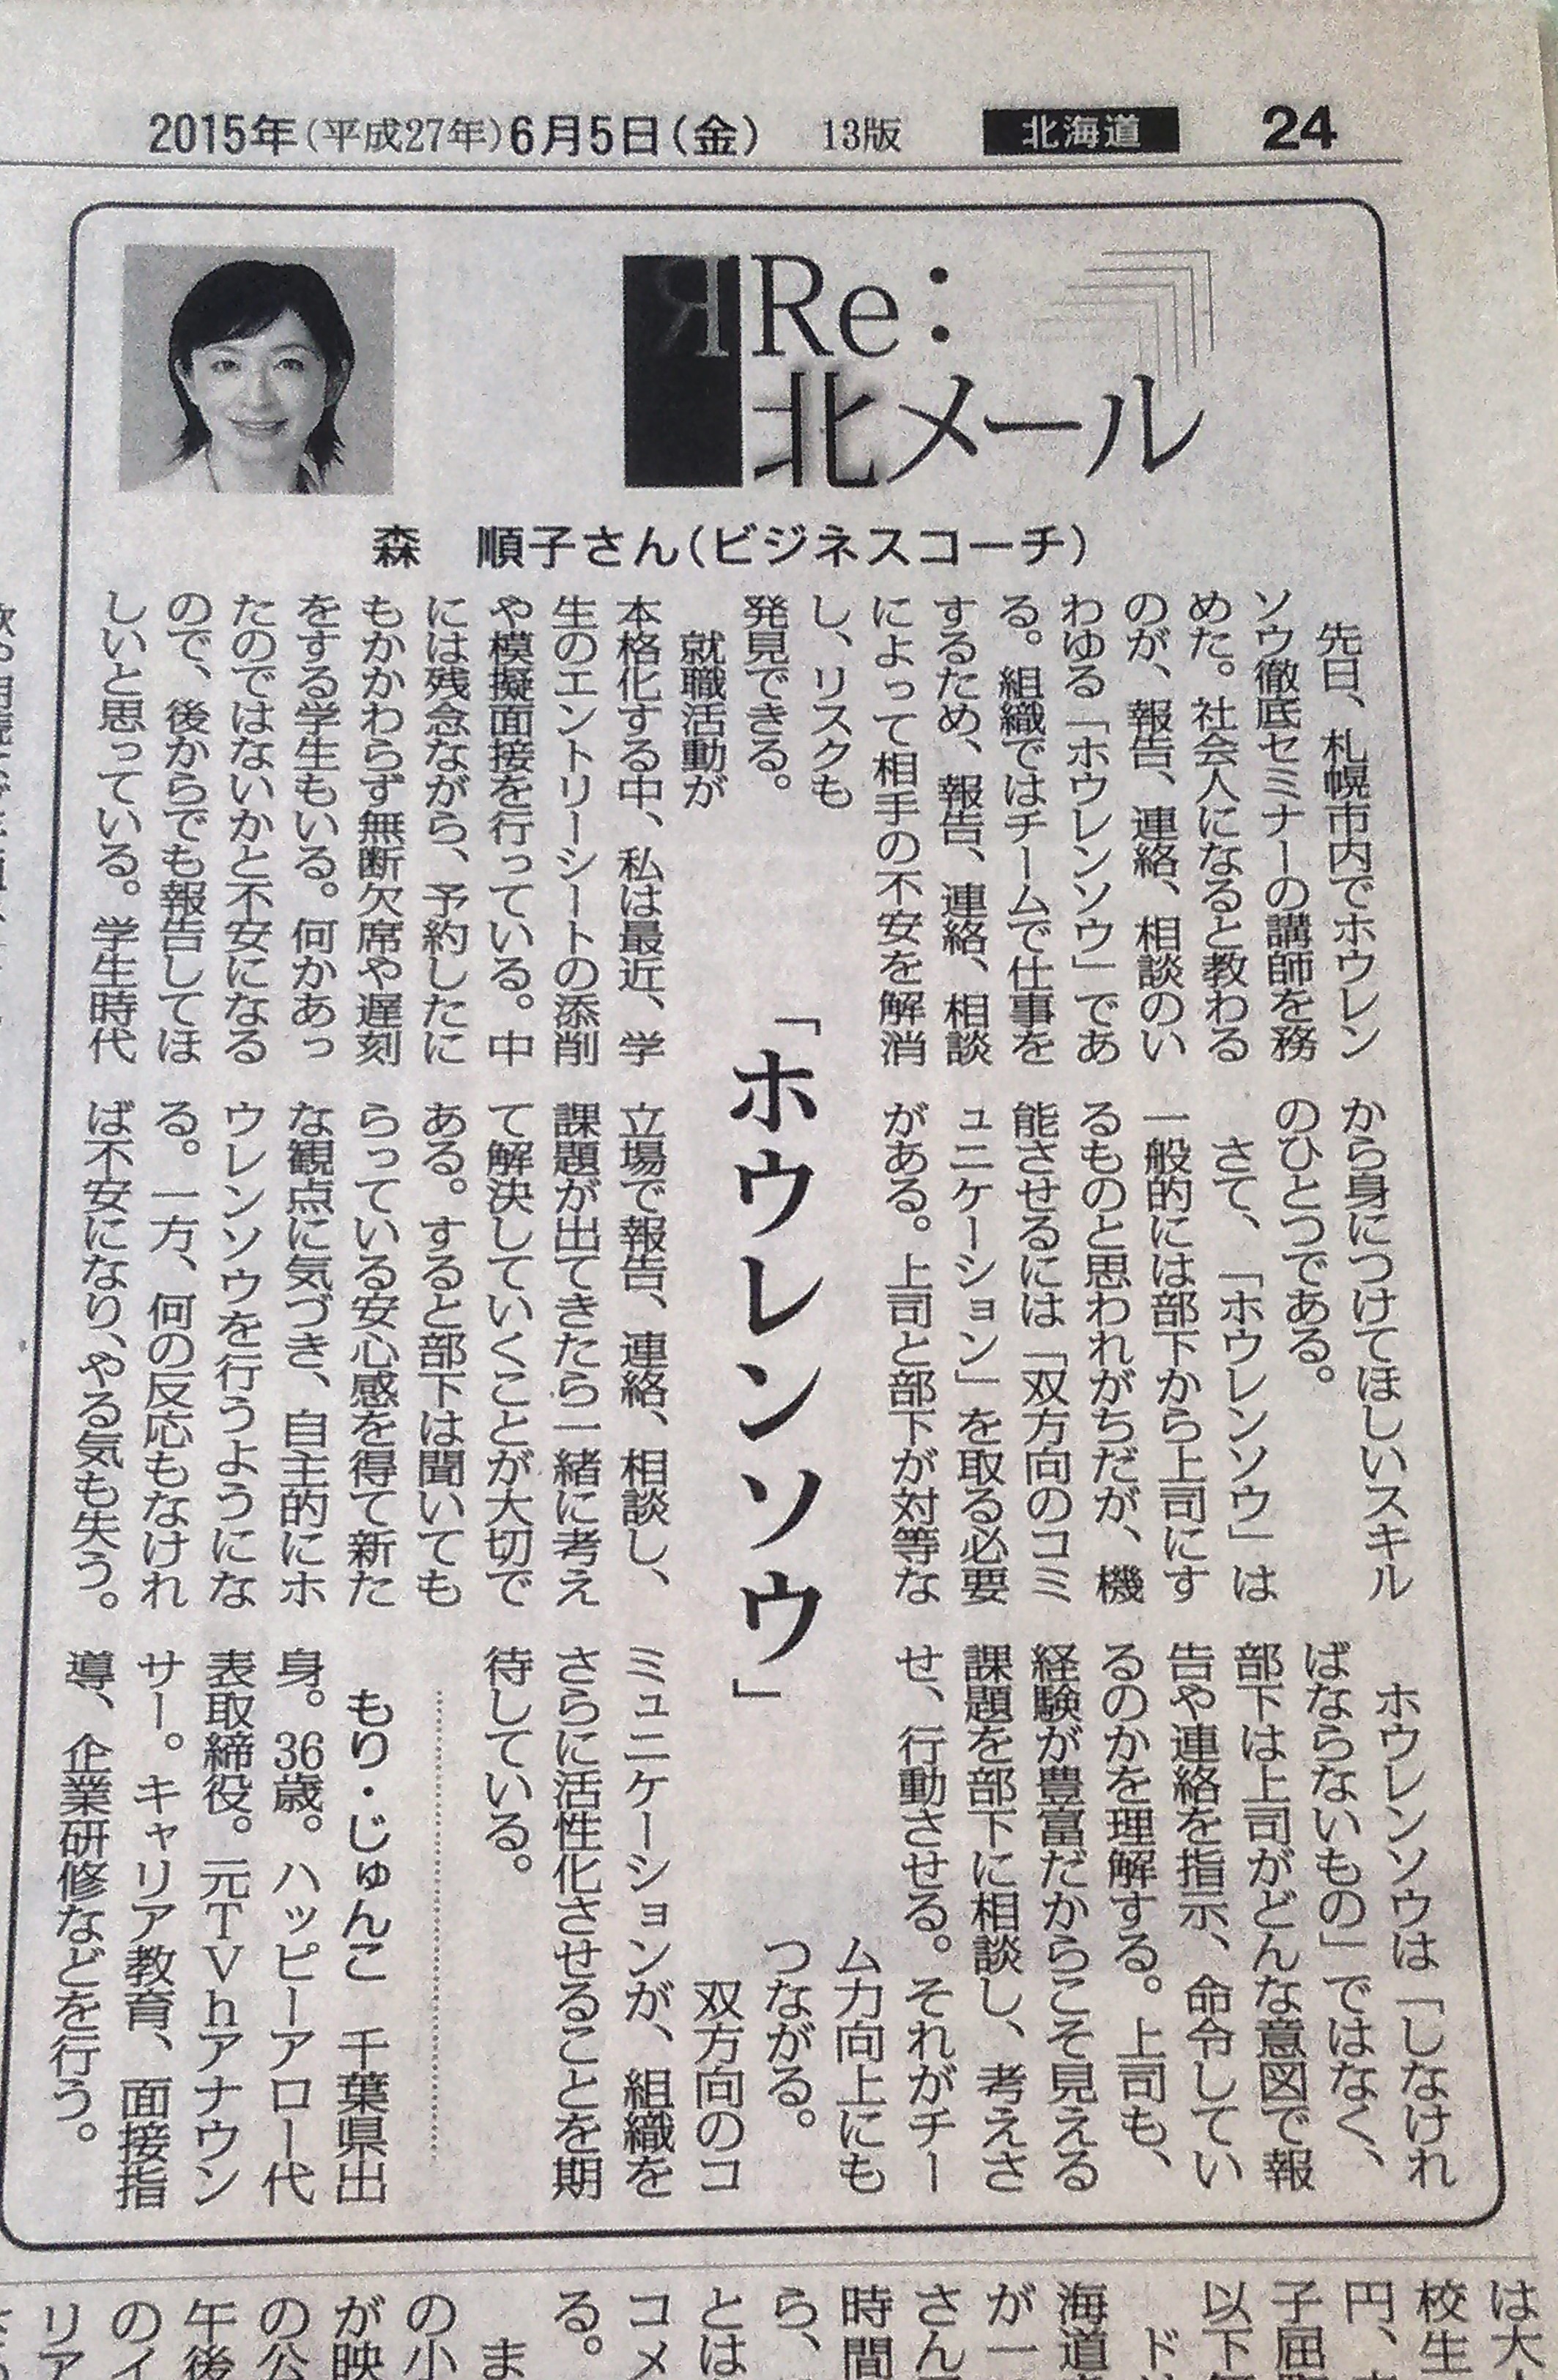 2015年(平成27年)6月5日(金) 13版 北海道 24
Re:
北メール
森 順子さん(ビジネスコーチ)
「ホウレンソウ」
先日、札幌市内でホウレン
ソウ徹底セミナーの講師を務
めた。社会人になると教わる
のが、報告、連絡、相談のい
わゆる「ホウレンソウ」であ
る。組織ではチームで仕事を
するため、報告、連絡、相談
によって相手の不安を解消
し、リスクも
発見できる。
就職活動が
本格化する中、私は最近、学
生のエントリーシートの添削
や模擬面接を行っている。中
には残念ながら、予約したに
もかかわらず無断欠席や遅刻
をする学生もいる。何かあっ
たのではないかと不安になる
ので、後からでも報告してほ
しいと思っている。学生時代
から身につけてほしいスキル
のひとつである。
さて、「ホウレンソウ」は
一般的には部下から上司にす
るものと思われがちだが、機
能させるには「双方向のコミ
ュニケーション」を取る必要
がある。上司と部下が対等な
立場で報告、連絡、相談し、
課題が出てきたら一緒に考え
て解決していくことが大切で
ある。すると部下は聞いても
らっている安心感を得て新た
な観点に気づき、自主的にホ
ウレンソウを行うようにな
る。一方、何の反応もなけれ
ば不安になり、やる気も失う。
ホウレンソウは「しなけれ
ばならないもの」ではなく、
部下は上司がどんな意図で報
告や連絡を指示、命令してい
るのかを理解する。上司も、
経験が豊富だからこそ見える
課題を部下に相談し、考えさ
せ、行動させる。それがチー
ム力向上にも
つながる。
双方向のコ
ミュニケーションが、組織を
さらに活性化させることを期
待している。
もり・じゅんこ 千葉県出
身。36歳。ハッピーアロー代
表取締役。元TVhアナウン
サー。キャリア教育、面接指
導、企業研修などを行う。
は大
校生
円、
子屈
以下
ド
海道
が一
さん
時間
ら、
とは
コメ
る。
ま
の小
が映
の公
午後
のイ
リア